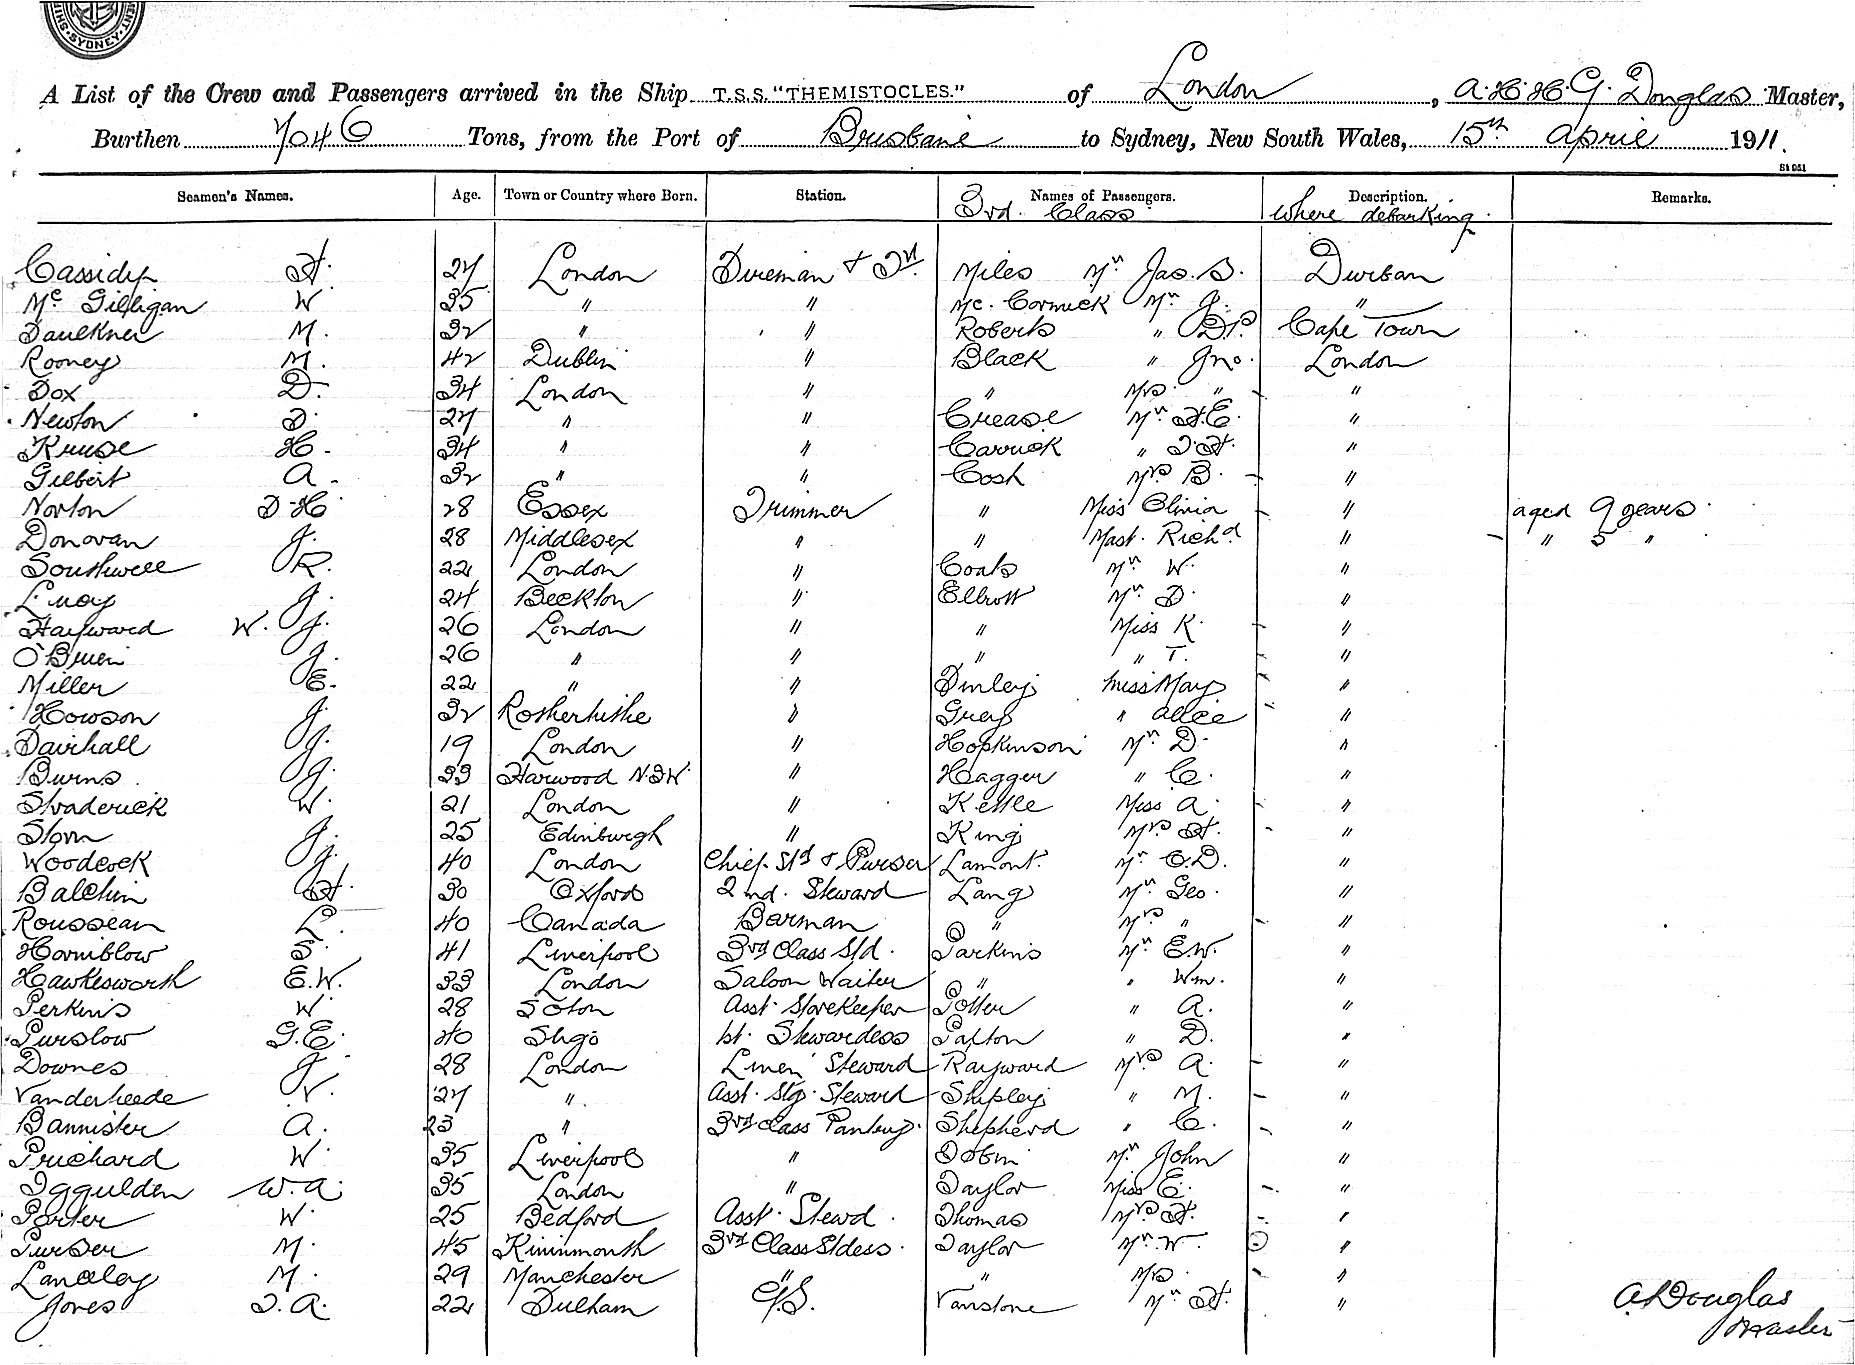 SYDNEY
A List of the Crew and Passengers arrived in the Ship T.S.S. "THEMISTOCLES." of London, A. H. H. G. Douglas Master,
Burthen 7046 Tons, from the Port of Brisbane to Sydney, New South Wales, 15th April 1911.
St 951
Seamen's Names. Age. Town or Country where Born. Station. Names of Passengers. Description. Remarks.
3rd. Class where debarking.
Cassidy H. 27 London Fireman & Tr. Miles Mr Jas. S. Durban
McGilligan W 35 " " Mc. Cormick Mr J. "
Faulkner M. 32 " " Roberts " Cape Town
Rooney M. 42 Dublin " Black " Jno. London
Fox D. 34 London " " Mrs " "
Newton D. 27 " " Crease Mr H.E. "
Kruse H. 34 " " Carrick " T.H. "
Gilbert A. 32 " " Cosh Mrs B. "
Norton F. H. 28 Essex Trimmer " Miss Olivia " aged 9 years.
Donovan J. 28 Middlesex " " Mast. Richd. " " 5 "
Southwell R. 22 London " Coats Mr W. "
Leroy J. 24 Beckton " Elliott Mr D. "
Hayward W. J. 26 London " " Miss K. "
O'Brien J. 26 " " " " T. "
Miller E. 22 " " Finley Miss May "
Howson J. 32 Rotherhithe " Grey " Alice "
Fairhall J. 19 London " Hopkinson Mr D. "
Burns J. 33 Harwood N.S.W. " Hagger " C. "
Shraderick W. 21 London " Kettle Miss A. "
Storn J. 25 Edinburgh " King Mrs H. "
Woodcock J. 40 London Chief. Std & Purser Lamont. Mr C.D. "
Balchin H. 30 Oxford 2nd. Steward Lang Mr Geo. "
Rousseau L. 40 Canada Barman " Mrs " "
Horniblow S. 41 Liverpool 3rd Class Std. Parkins Mr E.W. "
Hawkesworth E.W. 33 London Saloon Waiter " " Wm. "
Perkins W 28 S'oton Asst. Storekeeper Potter " A. "
Purslow G.E. 40 Sligo 1st. Stewardess Patton " D. "
Downes J. 28 London Linen Steward Rayward Mrs A. "
Vanderheede V. 27 " Asst. Stg. Steward Shipley " M. "
Bannister A. 23 " 3rd Class Pantry. Shepherd " C. "
Prichard W. 35 Liverpool " Tobin Mr John "
Iggulden W.A. 35 London " Taylor Miss E. "
Porter W. 25 Bedford Asst. Stewd. Thomas Mrs H. "
Purser M. 45 Kininmonth 3rd Class Stdess. Taylor Mr W. "
Langley M. 29 Manchester " " Mrs. "
Jones T. A. 22 Fulham G.S. Vanstone Mr H. "
A Douglas
Master